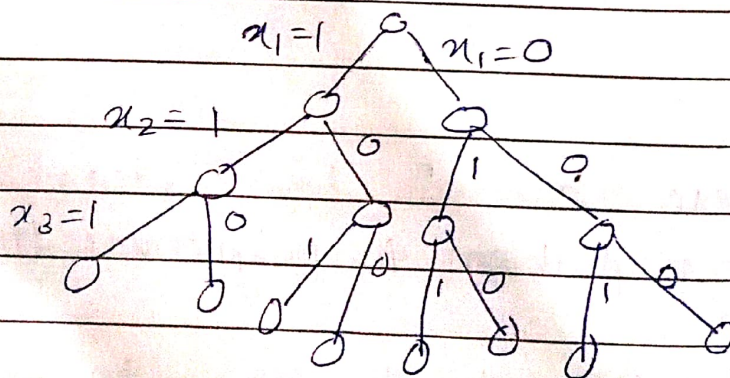 x₁=1 x₁=0
x₂= 1 0 1 0
x₃=1 0 1 0 1 0 1 0